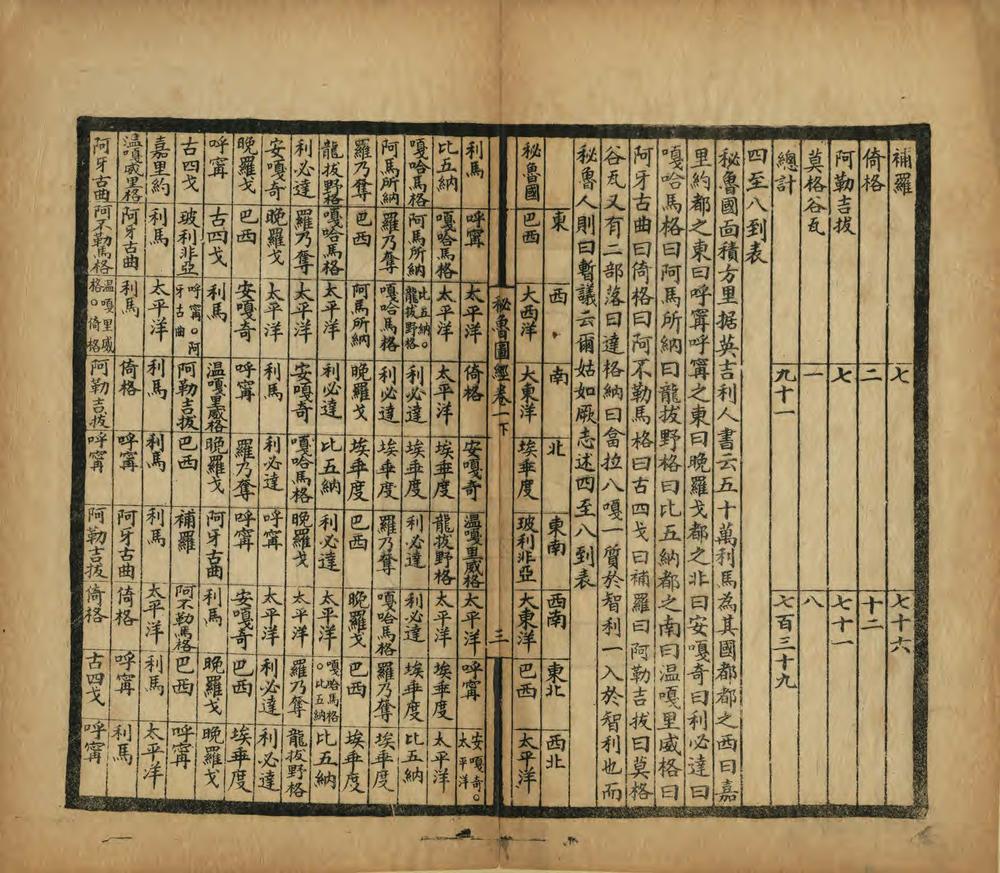 補羅 七 七十六
倚格 二 十二
阿勒吉拔 七 七十一
莫格谷瓦 一 八
總計 九十一 七百三十九
四至八到表
秘魯國面積方里据英吉利人書云五十萬利馬為其國都都之西曰嘉
里約都之東曰呼甯呼甯之東曰晚羅戈都之北曰安嘎奇曰利必達曰
嘎哈馬格曰阿馬所納曰龍拔野格曰比五納都之南曰温嘎里威格曰
阿牙古曲曰倚格曰阿不勒馬格曰古四戈曰補羅曰阿勒吉拔曰莫格
谷瓦又有二部落曰達格納曰畣拉八嘎一質於智利一入於智利也而
秘魯人則曰暫議云爾姑如厥志述四至八到表
東 西 南 北 東南 西南 東北 西北
秘魯國 巴西 大西洋 大東洋 埃垂度 玻利非亞 大東洋 巴西 太平洋
秘魯圖經卷一下 三
利馬 呼甯 太平洋 倚格 安嘎奇 温嘎里威格 太平洋 呼甯 安嘎奇。太平洋
比五納 嘎哈馬格 太平洋 太平洋 埃垂度 龍拔野格 太平洋 埃垂度 太平洋
嘎哈馬格 阿馬所納 比五納。龍拔野格 利必達 埃垂度 利必達 利必達 埃垂度 比五納
阿馬所納 羅乃奪 嘎哈馬格 利必達 埃垂度 羅乃奪 嘎哈馬格 羅乃奪 埃垂度
羅乃奪 巴西 阿馬所納 晚羅戈 埃垂度 巴西 晚羅戈 巴西 埃垂度
龍拔野格 嘎哈馬格 太平洋 利必達 比五納 利必達 太平洋 嘎哈馬格。比五納 比五納
利必達 羅乃奪 太平洋 安嘎奇 嘎哈馬格 晚羅戈 太平洋 羅乃奪 龍拔野格
安嘎奇 晚羅戈 太平洋 利馬 利必達 呼甯 太平洋 利必達 利必達
晚羅戈 巴西 安嘎奇 呼甯 羅乃奪 呼甯 安嘎奇 巴西 埃垂度
呼甯 古四戈 利馬 温嘎里威格 晚羅戈 阿牙古曲 利馬 晚羅戈 晚羅戈
古四戈 玻利非亞 呼甯。阿牙古曲 阿勒吉拔 巴西 補羅 阿不勒馬格 巴西 呼甯
嘉里約 利馬 太平洋 利馬 利馬 利馬 太平洋 利馬 太平洋
温嘎威里格 阿牙古曲 利馬 倚格 呼甯 阿牙古曲 倚格 呼甯 利馬
阿牙古曲 阿不勒馬格 温嘎里威格。倚格 阿勒吉拔 呼甯 阿勒吉拔 倚格 古四戈 呼甯